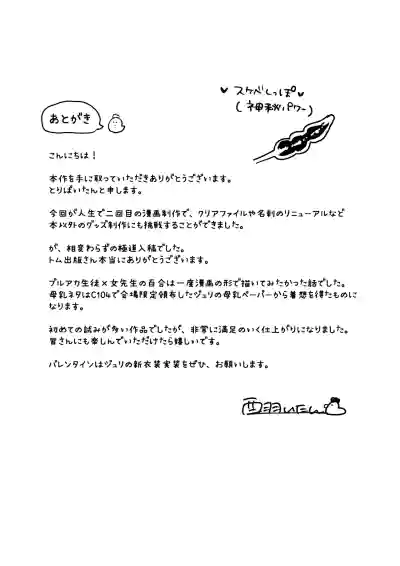 ♥ スケベしっぽ ♥
(神秘パワー)
あとがき
こんにちは!
本作を手に取っていただきありがとうございます。
とりぱいたんと申します。
今回が人生で二回目の漫画制作で、クリアファイルや名刺のリニューアルなど
本以外のグッズ制作にも挑戦することができました。
が、相変わらずの極道入稿でした。
トム出版さん本当にありがとうございます。
ブルアカ生徒×女先生の百合は一度漫画の形で描いてみたかった話でした。
母乳ネタはC104で会場限定頒布したジュリの母乳ペーパーから着想を得たものに
なります。
初めての試みが多い作品でしたが、非常に満足のいく仕上がりになりました。
皆さんにも楽しんでいただけたら嬉しいです。
バレンタインはジュリの新衣装実装をぜひ、お願いします。